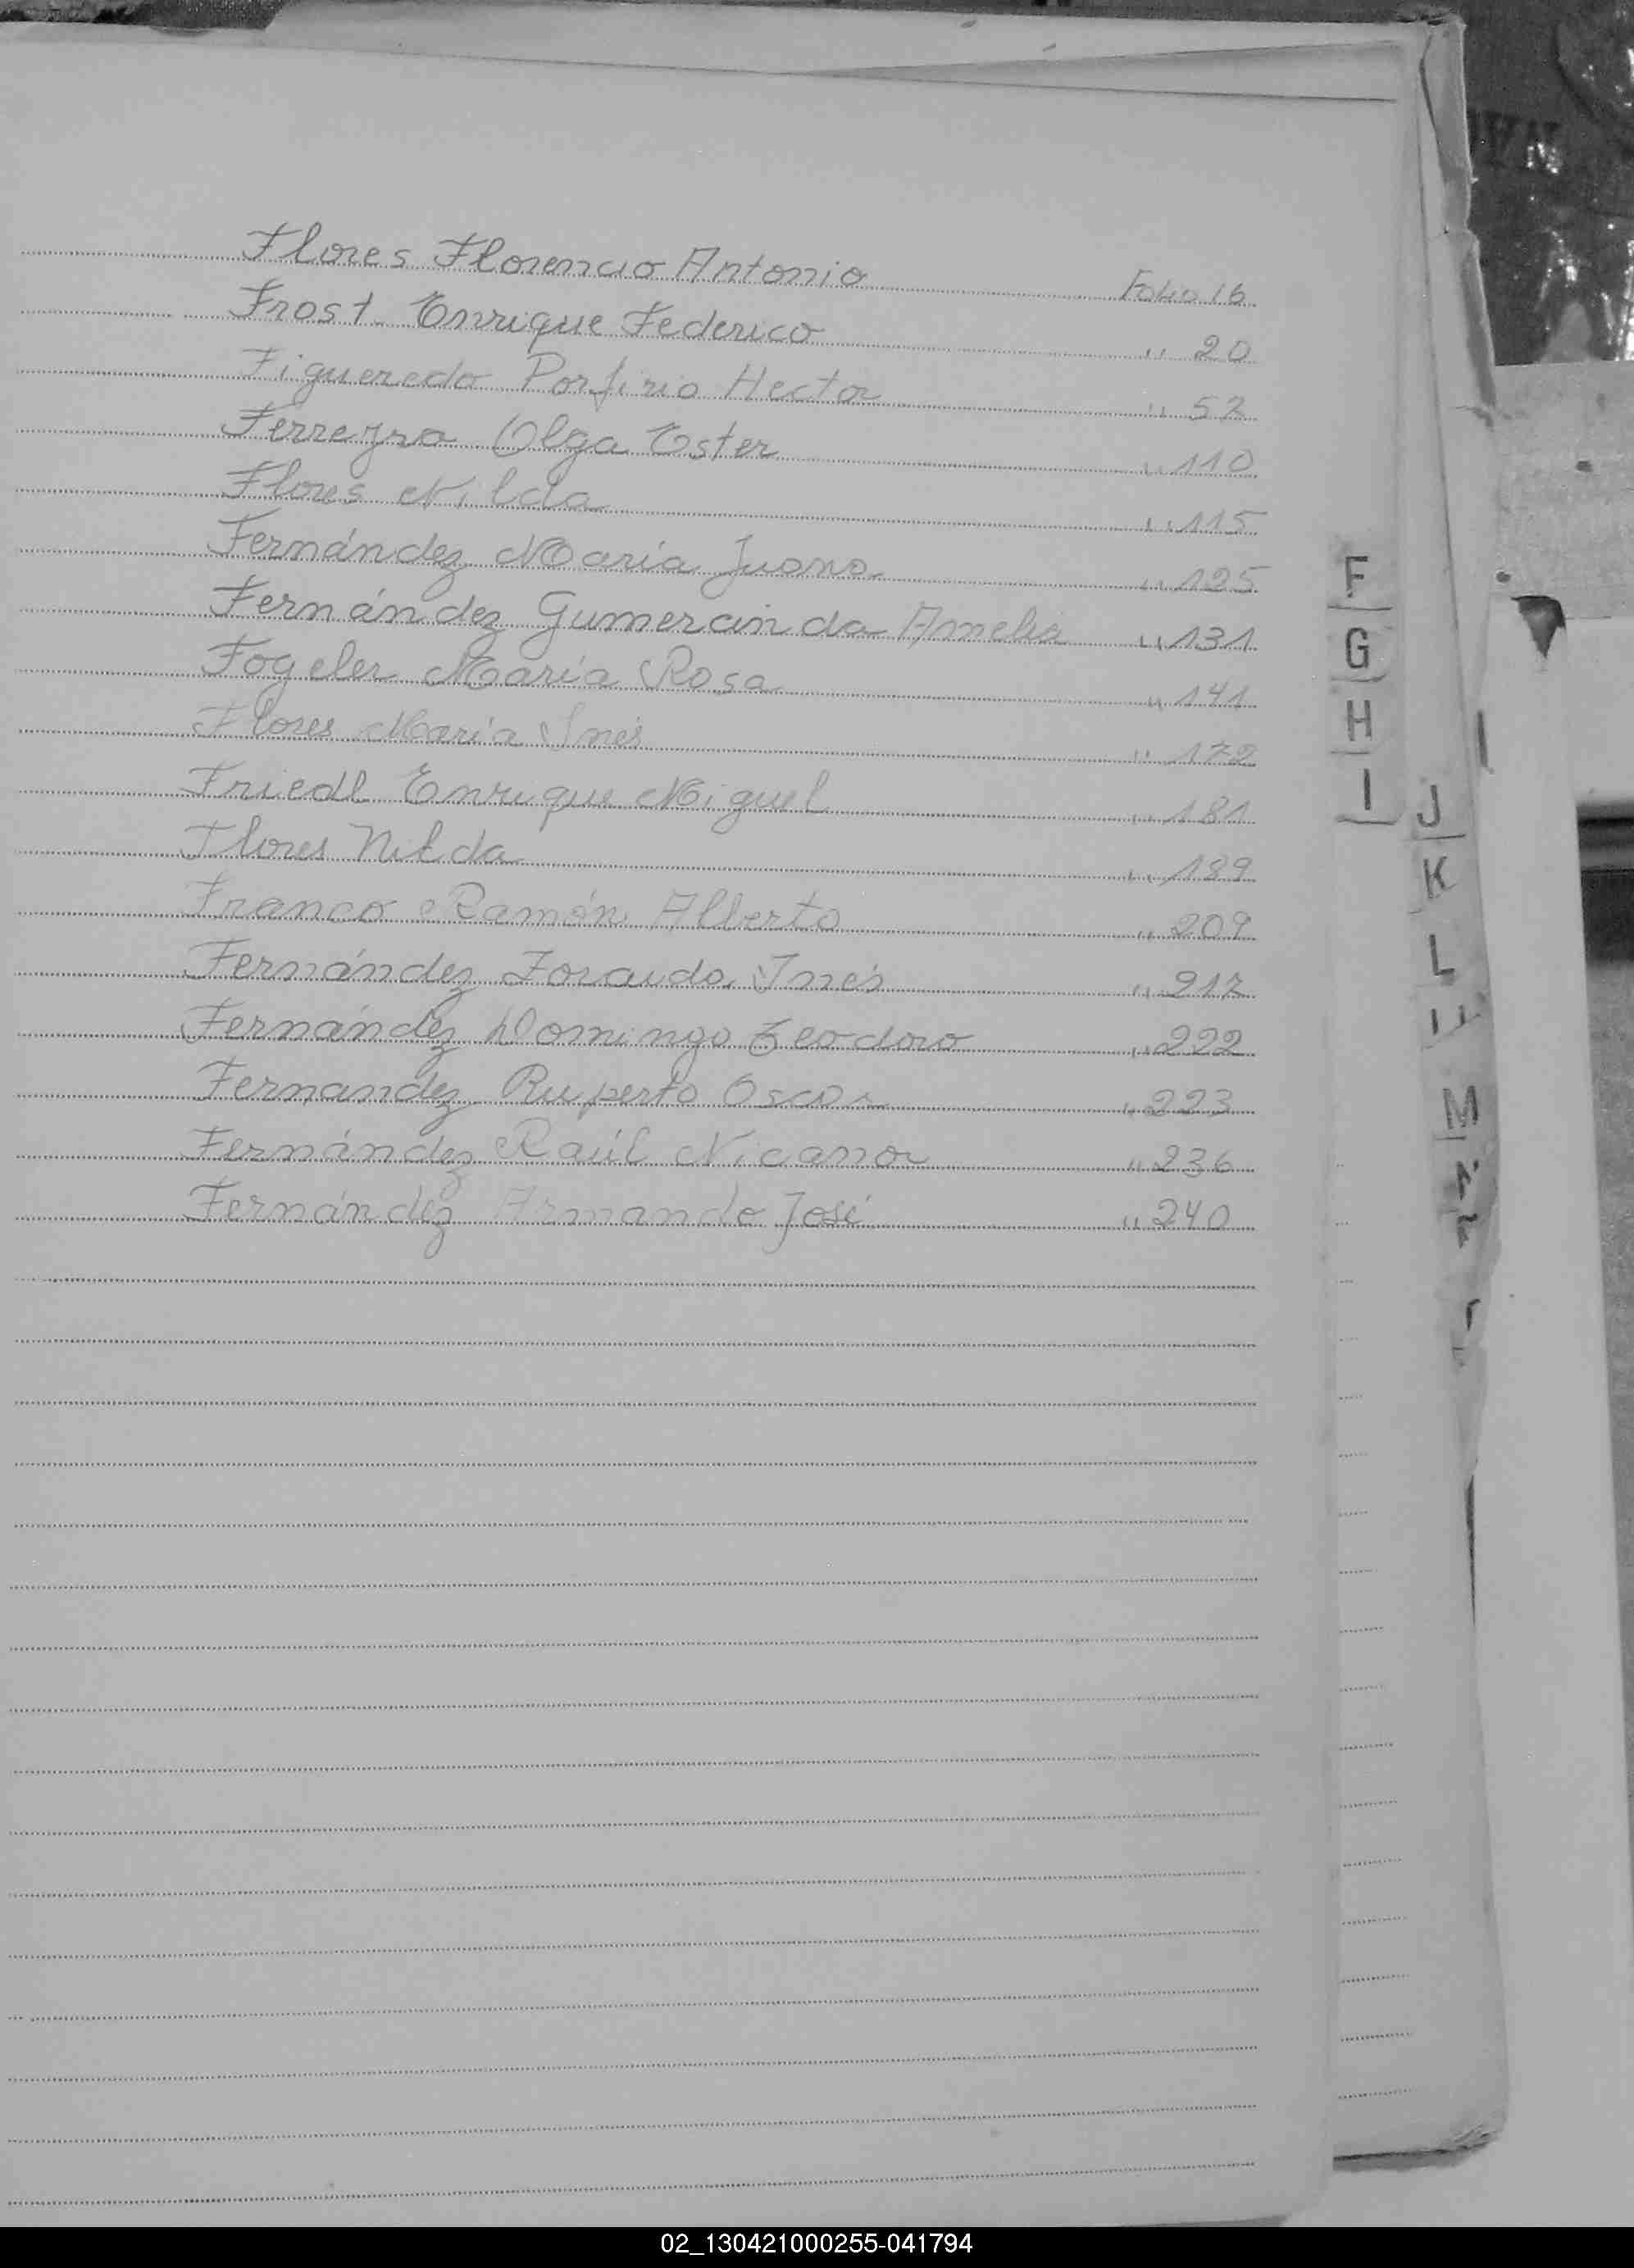 Flores Florencio Antonio Folio 16
Frost Enrique Federico " 20
Figueredo Porfirio Hector " 57
Ferreyra Olga Ester " 110
Flores Nilda " 115
Fernández María Juana " 125
Fernández Gumercinda Amelia " 131
Fogeler María Rosa " 141
Flores María Inés " 172
Friedl Enrique Miguel " 181
Flores Nilda " 189
Franco Ramón Alberto " 209
Fernández Zoraida Inés " 217
Fernández Domingo Teodoro " 222
Fernandez Ruperto Oscar " 223
Fernández Raúl Nicanor " 236
Fernández Armando José " 240
F
G
H
I
J
K
L
M
02_130421000255-041794